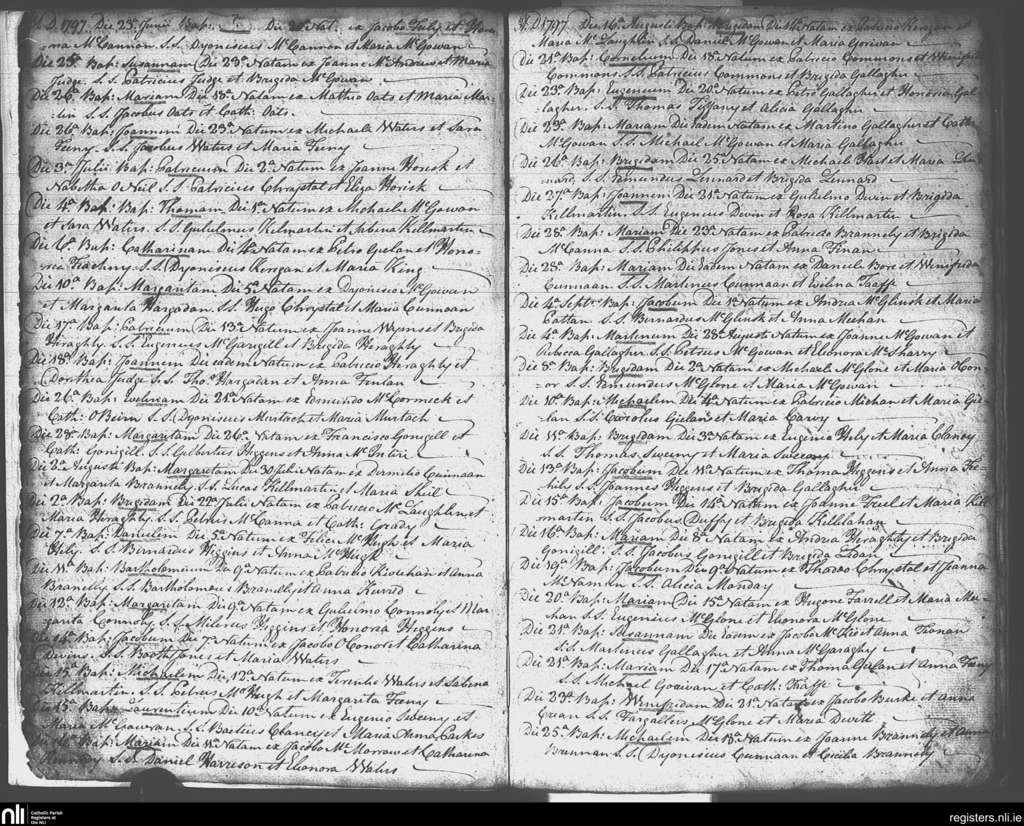 A.D. 1797. Die 23ª Junii Bap: Die Nat: ex Jacobo Fuly et Hono
ra McCannon S.S. Dyonisius McCannon et Maria McGowan
Die 25ª Bap: Susannam Die 23ª Natam ex Joanne McAndrew et Maria
Judge S.S. Patricius Judge et Brigida McGowan
Die 26ª Bap: Mariam Die 18ª Natam ex Mathio Oats et Maria
S.S. Jacobus Oats et Cath: Oats
Die 26ª Bap: Joannem Die 23ª Natum ex Michaele Waters et Sara
Feeny S.S. Jacobus Waters et Maria Feeny
Die 3ª Julii Bap: Patricium Die 2ª Natum ex Joanne Horisk et
Nabetha O Neil S.S. Patricius Chrystal et Eliza Horisk
Die 4ª Bap: Bap: Thomam Die 1ª Natum ex Michaele McGowan
et Sara Waters S.S. Gulielmus Kilmartin et Sabina Killmartin
Die 6ª Bap: Catharinam Die 4ª Natam ex Petro Gielan et Hono-
ria S.S. Dyonisius Kerrigan et Maria King
Die 10ª Bap: Margaritam Die 5ª Natam ex Dyonisio McGowan
et Margarita Hargadan S.S. Hugo Chrystal et Maria Cunnaan
Die 17ª Bap: Patricium Die 13ª Natum ex Joanne Wyms et Brigida
Heraghty S.S. Eugenius McGarigill et Brigida Heraghty
Die 18ª Bap: Joannem Die eadem Natum ex Patricio Heraghty et
Dorothea Judge S.S. Thos. Hargadan et Anna Finlan
Die 26ª Bap: Evelinam Die 21ª Natam ex McCormick et
Cath: OBeirn S.S. Dyonisius Murtach et Maria Murtach
Die 28ª Bap: Margaritam Die 26ª Natam ex Francisco Gonigill et
Cath: Gonigill S.S. Gilbertus Higgens et Anna McIntire
Die 2ª Augusti Bap: Margaritam Die 30 Julii Natam ex Cunnaan
et Margarita Brannelly S.S. Lucas Killmartin et Maria Sheil
Die 2ª Bap: Brigidam Die 22ª Julii Natam ex Patricio McLaughlin et
Maria Heraghty S.S. Petrus McCanna et Cath: Grady
Die 7ª Bap: Danielem Die 5ª Natum ex Felici McHugh et Maria
Hely S.S. Bernardus Higgins et Anna McHugh
Die 11ª Bap: Bartholomeum Die 9ª Natum ex Patricio et Anna
Branelly S.S. Bartholomeus Branelly et Anna
Die 13ª Bap: Margaritam Die 9ª Natam ex Gulielmo Connoly et Mar-
garita Connoly S.S. Milerus Higgins et Honoria Higgens
Die 14ª Bap: Jacobum Die 7ª Natum ex Jacobo Honor et Catharina
Devins S.S. Booth Jones et Maria Waters
Die 15ª Bap: Michaelem Die 12ª Natum ex Terentio Waters et Sabina
Killmartin S.S. Petrus McHugh et Margarita Feeny
Die 15ª Bap: Laurentium Die 10ª Natum ex Eugenio Sweeny et
Maria McGawran S.S. Clancy et Maria Anna Parkes
Bap: Mariam Die 11ª Natam ex Jacobo McMorrow et Catharina
Kennedy S.S. Daniel Harrison et Elionora Waters
A.D. 1797. Die 16ª Augusti Bap: Brigidam Die 14ª Natam ex Patricio Keregan
Maria McLaughlin S.S. Daniel McGowan et Maria Gorwan
Die 21ª Bap: Cornelium Die 18ª Natum ex Patricio Commons et Winifrida
Commons S.S. Patricius Commons et Brigida Gallagher
Die 23ª Bap: Eugenium Die 20ª Natum ex Petro Gallagher et Honoria Gal-
lagher S.S. Thomas Tiffany et Alicia Gallagher
Die 23ª Bap: Mariam Die eadem Natam ex Martino Gallagher et Cath:
McGowan S.S. Michael McGowan et Maria Gallagher
Die 26ª Bap: Brigidam Die 25ª Natam ex Michaele et Maria Lin-
nard S.S. Edmundus Linnard et Brigida Lennard
Die 27ª Bap: Joannem Die 21ª Natum ex Gulielmo Devin et Brigida
Killmartin S.S. Eugenius Devin et Rosa Killmartin
Die 28ª Bap: Mariam Die 23ª Natam ex Patricio Brannely et Brigida
McCanna S.S. Philippus Jones et Anna Finan
Die 28ª Bap: Mariam Die eadem Natam ex Daniele Bree et Winifrida
Cunnaan S.S. Martinus Cunnaan et Evelina Taaffe
Die 4ª Septr. Bap: Jacobum Die 1ª Natum ex Andrea McGlinsk et Maria
Pattan S.S. Bernardus McGlinsk et Anna Michan
Die 4ª Bap: Martinum Die 28ª Augusti Natum ex Joanne McGowan et
Rebecca Gallagher S.S. Petrus McGowan et Elionora McSharry
Die 8ª Bap: Brigidam Die 2ª Natam ex Michaele McGlone et Maria Con-
nor S.S. Edmundus McGlone et Maria McGowan
Die 10ª Bap: Michaelem Die 4ª Natum ex Patricio Michan et Maria Gie-
lan S.S. Carolus Gielan et Maria Carvy
Die 11ª Bap: Brigidam Die 3ª Natam ex Eugenio Hely et Maria Clancy
S.S. Thomas Sweeny et Maria Sweeny
Die 13ª Bap: Jacobum Die 11ª Natum ex Thoma Higgens et Anna
hily S.S. Joannes Higgens et Brigida Gallagher
Die 15ª Bap: Jacobum Die 14ª Natum ex Joanne Freel et Maria Kil-
martin S.S. Jacobus Duffy et Brigida Killilahan
Die 16ª Bap: Mariam Die 8ª Natam ex Andrea Heraghty et Brigida
Gonigill S.S. Jacobus Gonigill et Brigida Ledan
Die 19ª Bap: Jacobum Die 9ª Natum ex Thadeo Chrystal et Joanna
McNamin S.S. Alicia Monday
Die 20ª Bap: Mariam Die 15ª Natam ex Hugone Farrell et Maria Me-
han S.S. Eugenius McGlone et Elionora McGlone
Die 21ª Bap: Susannam Die eadem ex Jacobo McKeo et Anna Fronan
S.S. Martinus Gallagher et Anna McGaraghy
Die 21ª Bap: Mariam Die 17ª Natam ex Thoma Galan et Anna Feeny
S.S. Michael Gowan et Cath: Taaffe
Die 23ª Bap: Winifridam Die 21ª Natam ex Jacobo Burke et Anna
Crean S.S. Fargallus McGlone et Maria Devitt
Die 25ª Bap: Michaelem Die 18ª Natum ex Joanne Brannely et Anna
Brannan S.S. Dyonisius Cunnaan et Cecilia Brannely
nli
Catholic Parish
Registers at
the NLI
registers.nli.ie